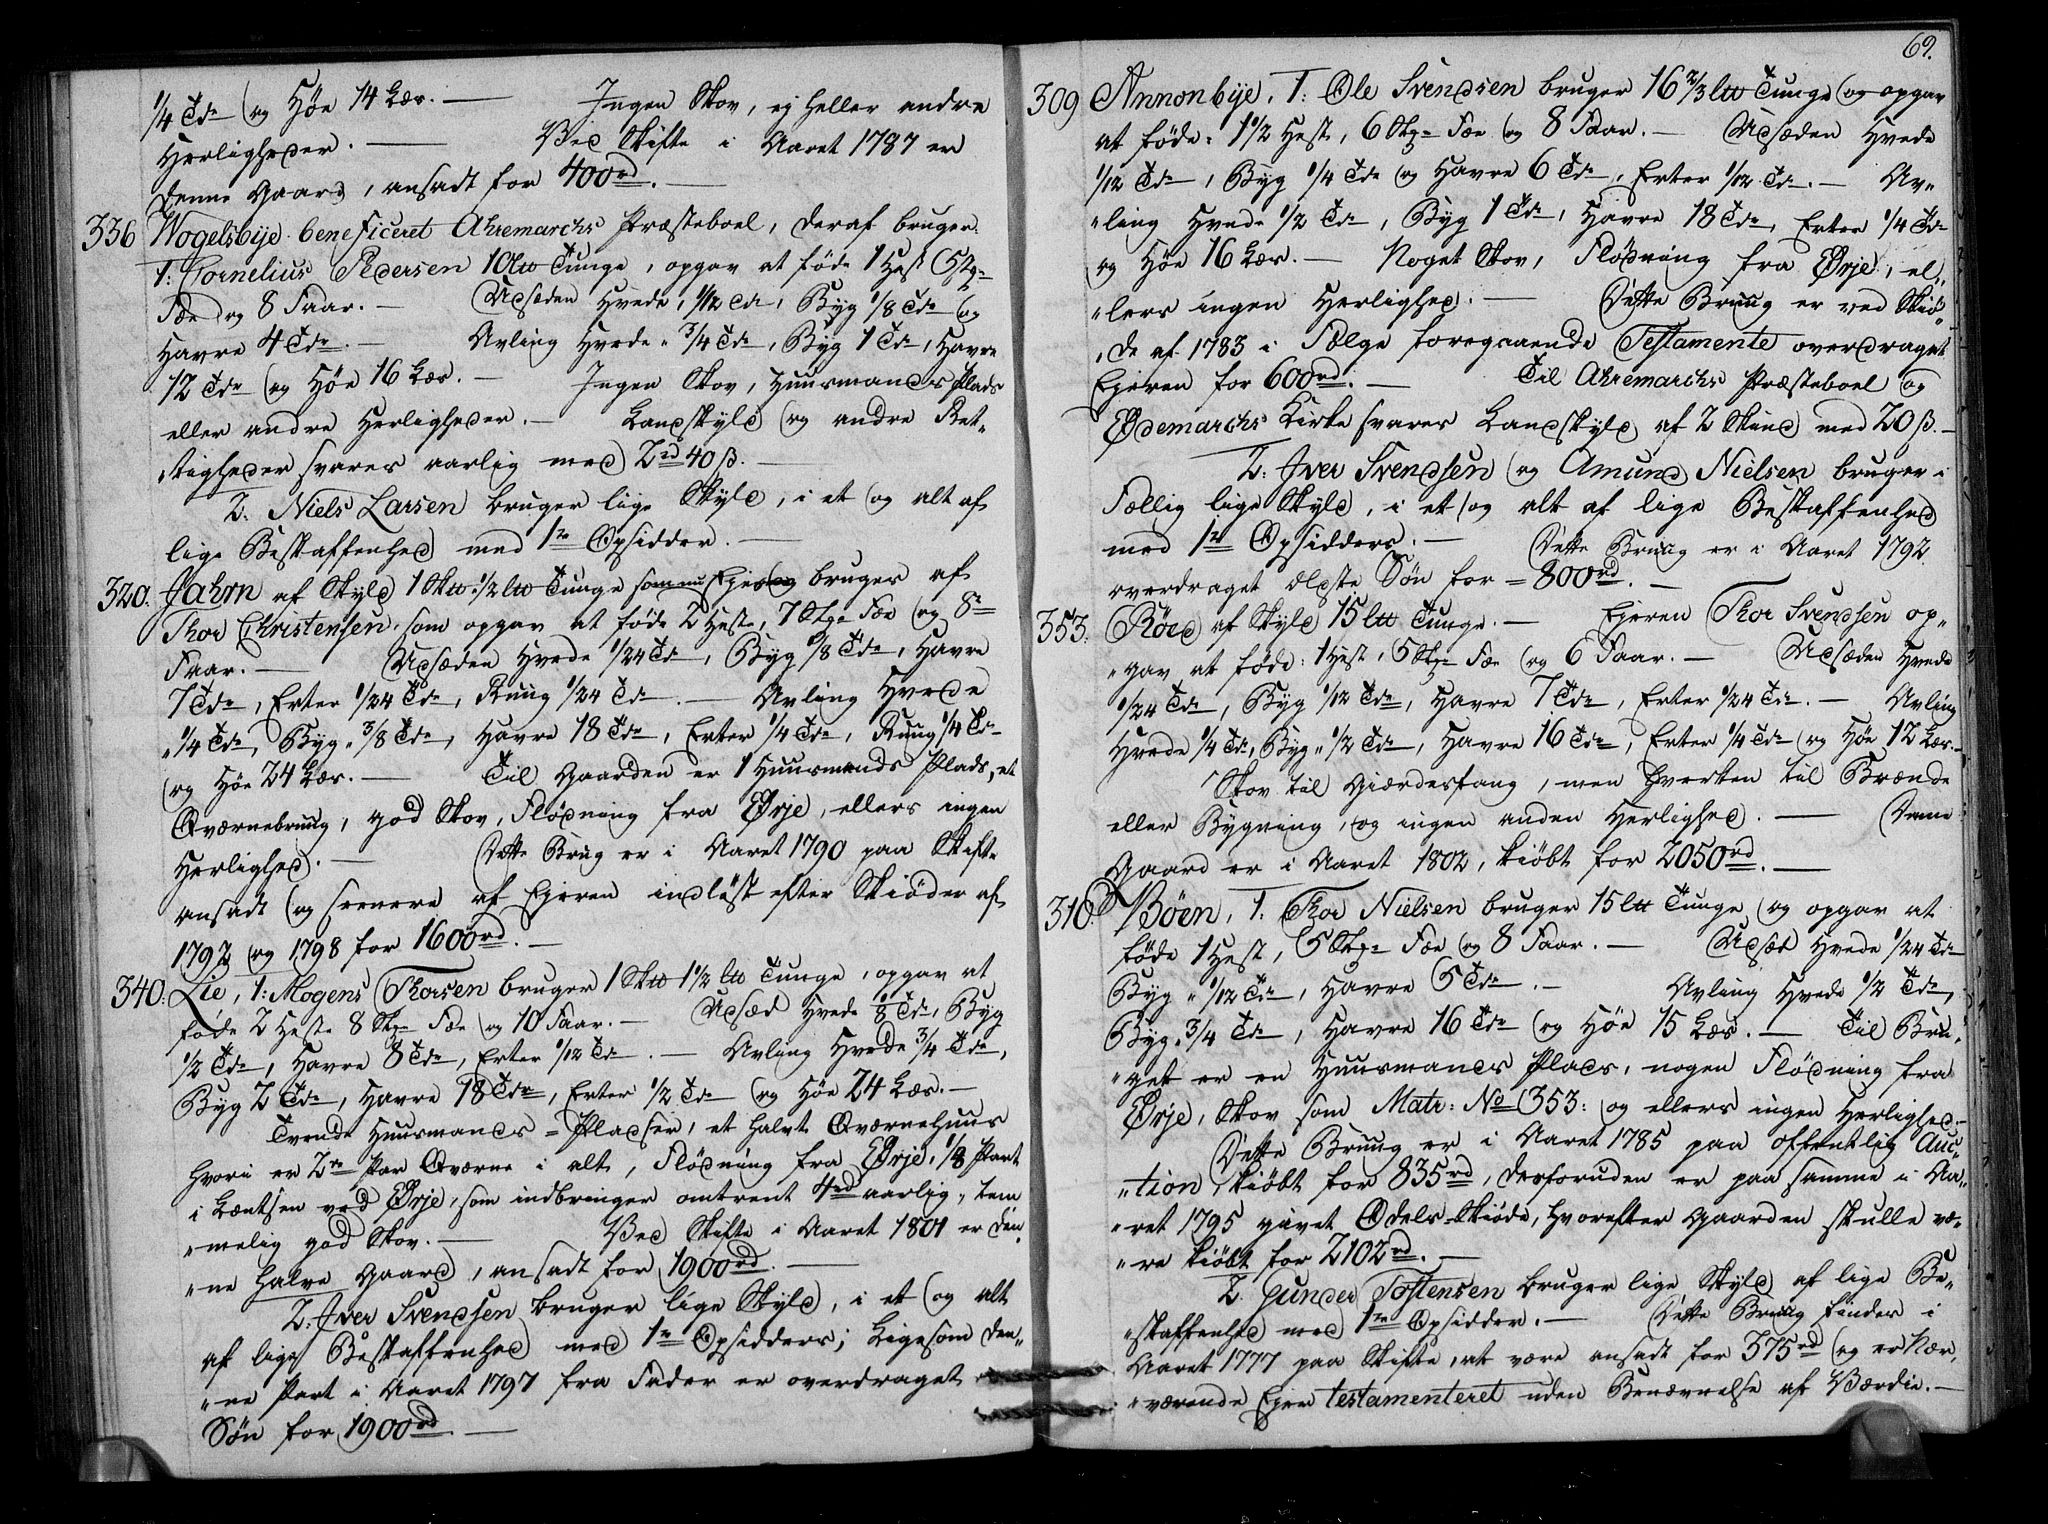 1/4 Tdr og Høe 14 Læs. — Ingen Skov, ej heller andre
Herligheder. — Ved Skifte i Aaret 1787 er
denne Gaard, ansadt for 400rd. —
336 Wogelsbye beneficeret Ahremarchs Præsteboel, deraf bruger
1: Cornelius Pedersen 10 lt Tunge, opgav at føde 1 Hest 5 Stk=
Fæe og 8 Faar. — Udsæden Hvede, 1/12 Tdr, Byg 1/8 Tdr og
Havre 4 Tdr. — Avling Hvede 3/4 Tdr, Byg 1 Tdr, Havre
12 Tdr og Høe 16 Læs. — Ingen Skov, Huusmands Plads
eller andre Herligheder. — Landskyld og andre Ret„
„tigheder svares aarlig med 2rd 40 ß. —
2. Niels Larsen bruger lige Skyld, i et og alt af
lige Beskaffenhed med 1te Opsidder. —
320. Jahrn af Skyld 1 Skt 1/2 lt Tunge som nu Ejes og bruges af
Thor Christensen, som opgav at føde 2 Heste, 7 Stk= Fæe og 8=
Faar. — Udsæden Hvede 1/24 Tdr, Byg 1/8 Tdr, Havre
7 Tdr, Erter 1/24 Tdr, Ruug 1/24 Tdr. — Avling Hvede
„1/4 Tdr, Byg 3/8 Tdr, Havre 18 Tdr, Erter 1/4 Tdr, Ruug 1/4 Tdr
og Høe 24 Læs. — Til Gaarden er 1 Huusmands Plads, et
Qværnebruug, god Skov, Flødning fra Ørje, ellers ingen
Herlighed. — Dette Brug er i Aaret 1790 paa Skifte
ansadt og seenere af Ejeren indløst efter Skiøder af
1792 og 1798 for 1600rd. —
340. Lie, 1: Mogens Thorsen bruger 1 Skt 1 1/2 lt Tunge, opgav at
føde 2 Heste 8 Stk= Fæe og 10 Faar. — Udsæd Hvede 1/8 Tdr, Byg
1/2 Tdr, Havre 8 Tdr, Erter 1/12 Tdr. — Avling Hvede 3/4 Tdr,
Byg 2 Tdr, Havre 18 Tdr, Erter 1/2 Tdr og Høe 24 Læs. —
Tvende Huusmands=Pladser, et halvt Qværnehuus
hvori er 2de Par Qværne i alt, Flødning fra Ørje, 1/8 Part
i Læntsen ved Ørje, som indbringer omtrent 4rd aarlig, tem
„melig god Skov. — Ved Skifte i Aaret 1801 er den„
„ne halve Gaard, ansadt for 1900rd. —
2: Iver Svendsen bruger lige Skyld, i et og alt
af lige Beskaffenhed med 1te Opsidders; Ligesom den„
„ne Part i Aaret 1797 fra Fader er overdraget
Søn for 1900rd. —
69.
309 Annonbye, 1: Ole Svendsen bruger 16 2/3 lt Tunge og opgav
at føde: 1 1/2 Hest, 6 Stk= Fæe og 8 Faar. — Udsæden Hvede
1/12 Tdr, Byg 1/4 Tdr og Havre 6 Tdr, Erter 1/12 Tdr. — Av„
„ling Hvede 1/2 Tdr, Byg 1 Tdr, Havre 18 Tdr, Erter 1/4 Tdr
og Høe 16 Læs. — Noget Skov, Flødning fra Ørje, el„
„lers ingen Herlighed. — Dette Bruug er ved Skiø„
„de af 1783 i Følge foregaaende Testamente overdraget
Ejeren for 600rd. — Til Ahremarchs Præsteboel og
Ødemarchs Kirke svares Landskyld af 2 Skind med 20 ß. —
2: Iver Svendsen og Amund Nielsen bruger i
Fællig lige Skyld, i et og alt af lige Beskaffenhed
med 1te Opsidders. — Dette Bruug er i Aaret 1792
overdraget ældste Søn for = 800rd. —
353. Röed af Skyld 15 lt Tunge. — Ejeren Thor Svendsen op„
„gav at føde: 1 Hest, 5 Stk= Fæe og 6 Faar. — Udsæden Hvede
1/24 Tdr, Byg 1/12 Tdr, Havre 7 Tdr, Erter 1/24 Tdr. — Avling
Hvede 1/4 Tdr, Byg 1/2 Tdr, Havre 16 Tdr, Erter 1/4 Tdr og Høe 12 Læs. —
Skov til Giærdesfang, men hverken til Brænde
eller Bygning, og ingen anden Herlighed. — Denne
Gaard er i Aaret 1802, kiøbt for 2050rd. —
310. Böen, 1. Thor Nielsen bruger 15 lt Tunge og opgav at
føde 1 Hest, 5 Stk= Fæe og 8 Faar. — Udsæd Hvede 1/24 Tdr
Byg 1/12 Tdr, Havre 5 Tdr. — Avling Hvede 1/2 Tdr,
Byg 3/4 Tdr, Havre 16 Tdr og Høe 15 Læs. — Til Bru„
„get er en Huusmands Plads, nogen Flødning fra
Ørje, Skov som Matr: No 353: og ellers ingen Herlighed. —
Dette Bruug er i Aaret 1785 paa offentlig Auc„
„tion, kiøbt for 835rd, desforuden er paa samme i Aa„
„ret 1795 givet Odels-Skiøde, hvorefter Gaarden skulle væ„
„re kiøbt for 2102rd. —
2. Gunder Tostensen bruger lige Skyld af lige Be„
„skaffenhed med 1te Opsidder. — Dette Bruug findes i
Aaret 1777 paa Skifte, at være ansadt for 375rd og er Nær„
„værende Ejer testamenteret uden Benævnelse af Værdie. —